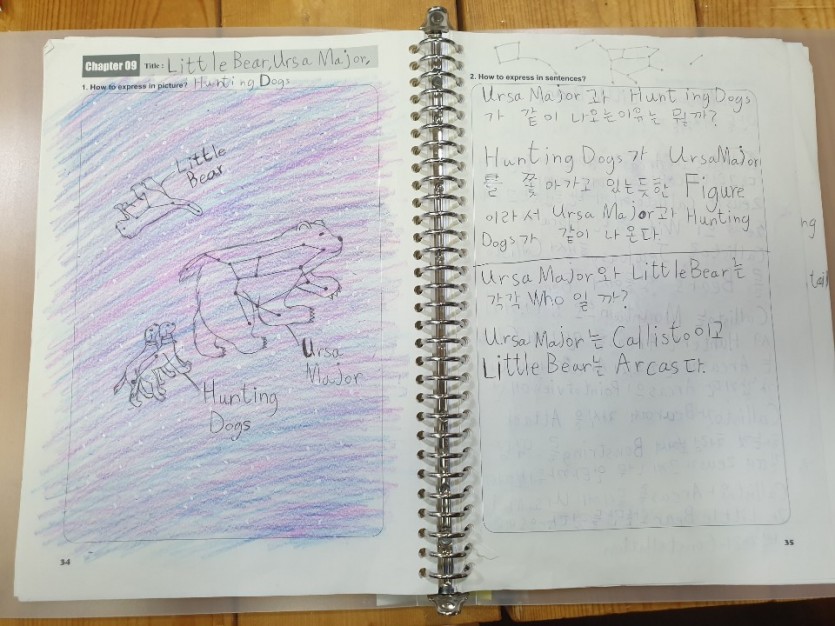 Chapter 09 Title : Little Bear, Ursa Major,
Hunting Dogs
1. How to express in picture?
Little
Bear
Ursa
Major
Hunting
Dogs
34
2. How to express in sentences?
Ursa Major과 Hunting Dogs
가 같이 나오는 이유는 뭘까?
Hunting Dogs가 Ursa Major
를 쫓아가고 있는듯한 Figure
이라서 Ursa Major과 Hunting
Dogs가 같이 나온다
Ursa Major와 Little Bear는
각각 Who 일 까?
Ursa Major는 Callisto이고
Little Bear는 Arcas다.
35
ng
tail